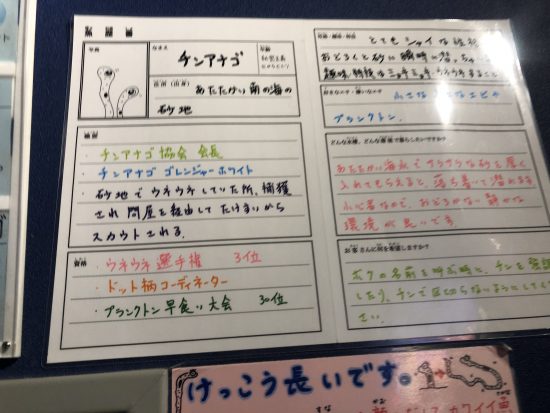 履歴書
写真
なまえ
チンアナゴ
年齢
住所(出身)
あたたかい南の海の
砂地
職歴
・チンアナゴ協会 会長
・チンアナゴ ゴレンジャーホワイト
・砂地でウネウネしていた所、捕獲
され問屋を経由してたけすいから
スカウトされる。
資格
・ウネウネ選手権 3位
・ドット柄コーディネーター
・プランクトン早食い大会 30位
とてもシャイな性格
おどろくと砂に瞬時に
好きなエサ・嫌いなエサ
小さな エビや
プランクトン。
どんな水槽、どんな環境で暮らしたいですか?
あたたかい海水でさらさらな砂を厚く
入れてもらえると、落ち着いて潜れます
小心者なので、おどろかない静かな
環境が良いです。
お客さんに何を希望しますか?
ボクの名前を呼ぶ時に、チンを強調
したり、チンで区切らないようにしてくだ
さい。
けっこう長いです。